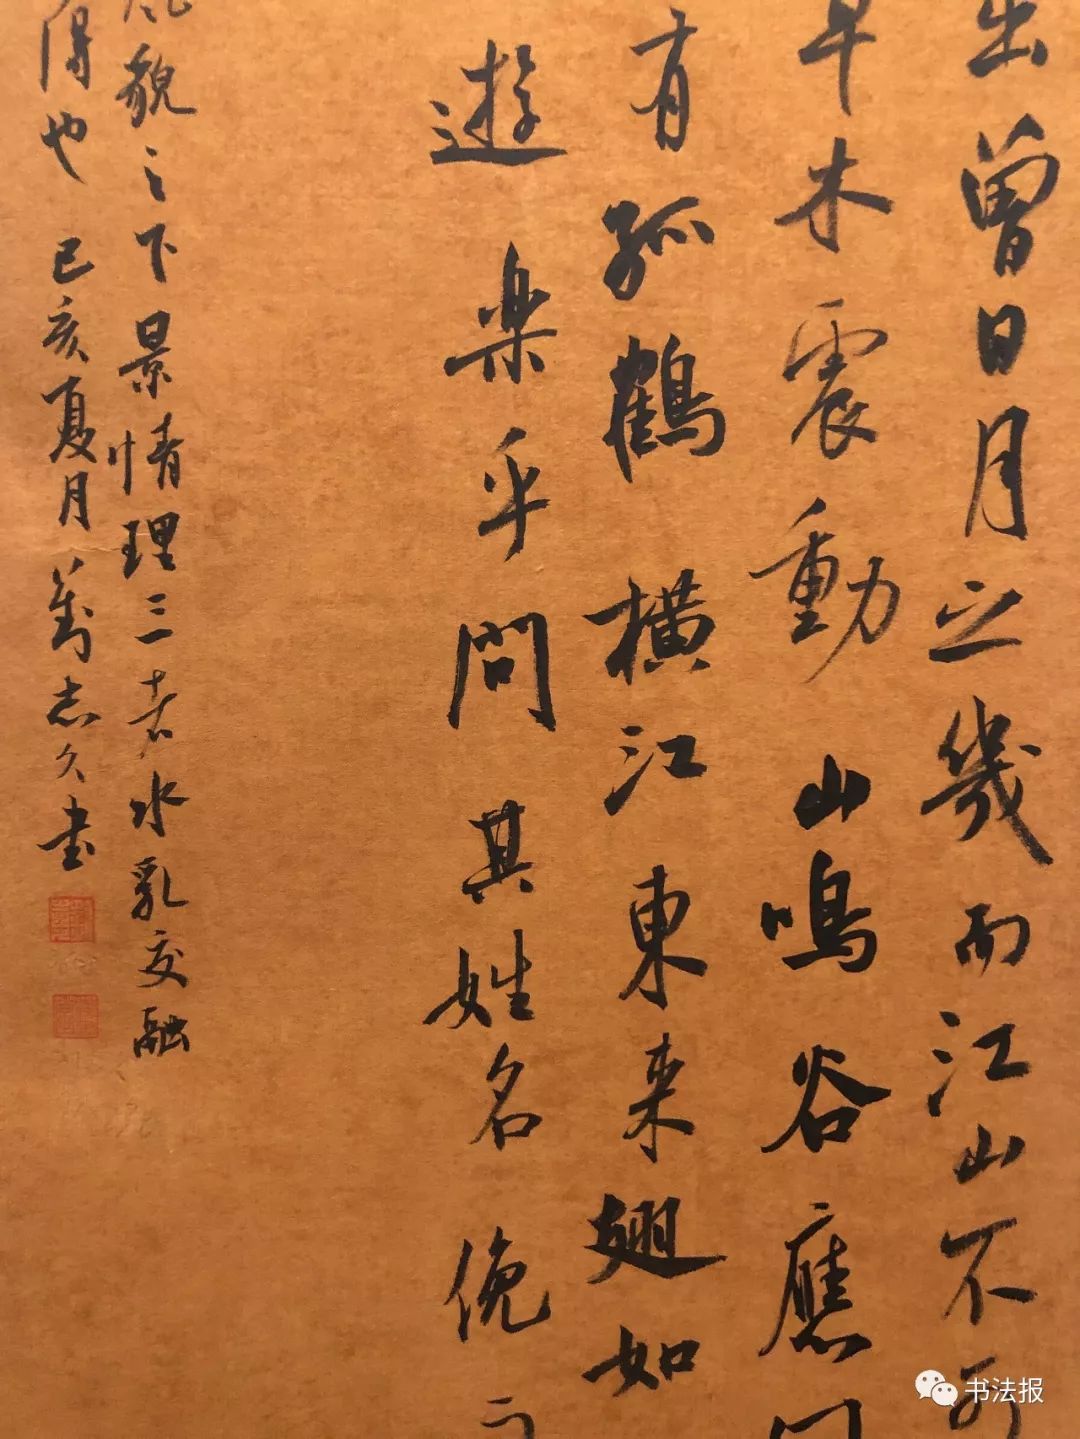 出曾日月之幾而江山不可
草木震動山鳴谷應
有孤鶴橫江東来翅如
遊楽乎問其姓名俛而
貌之下景情理三者水乳交融
得也己亥夏月萬志久書
书法报